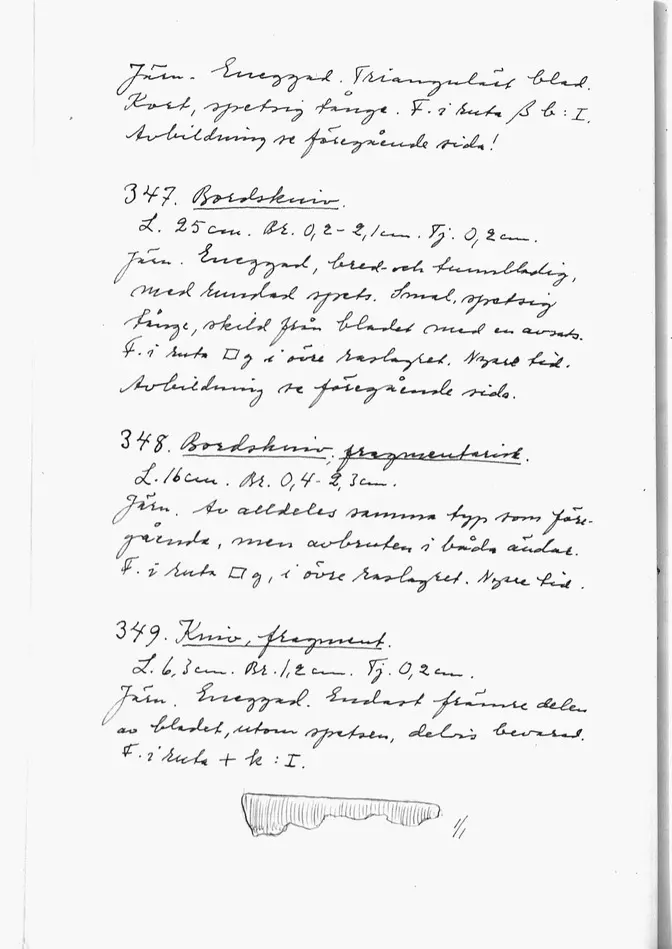 Järn. Eneggad. Triangulärt blad.
Kort, spetsig tånge. F. i ruta β b : I.
Avbildning se föregående sida!
347. Bordskniv.
L. 25 cm. Br. 0,2-2,1 cm. Tj. 0,2 cm.
Järn. Eneggad, bred- och tunnbladig,
med rundad spets. Smal, spetsig
tånge, skild från bladet med en avsats.
F. i ruta □ g i övre raslagret. Nyare tid.
Avbildning se föregående sida.
348. Bordskniv, fragmentarisk.
L. 16 cm. Br. 0,4-2,3 cm.
Järn. Av alldeles samma typ som före-
gående, men avbruten i båda ändar.
F. i ruta □ g, i övre raslagret. Nyare tid.
349. Kniv, fragment.
L. 6,3 cm. Br. 1,2 cm. Tj. 0,2 cm.
Järn. Eneggad. Endast främre delen
av bladet, utom spetsen, delvis bevarad.
F. i ruta + k : I.
1/1